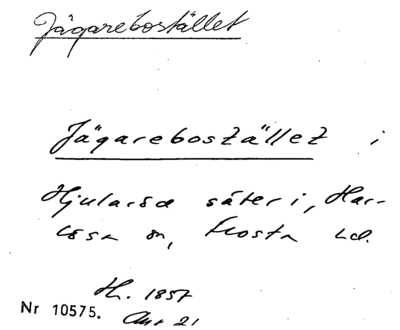 Jägarebostället
Jägarebostället i
Hjularöd säteri, Har-
lösa sn, Frosta hd.
H. 1857
Nr 10575.